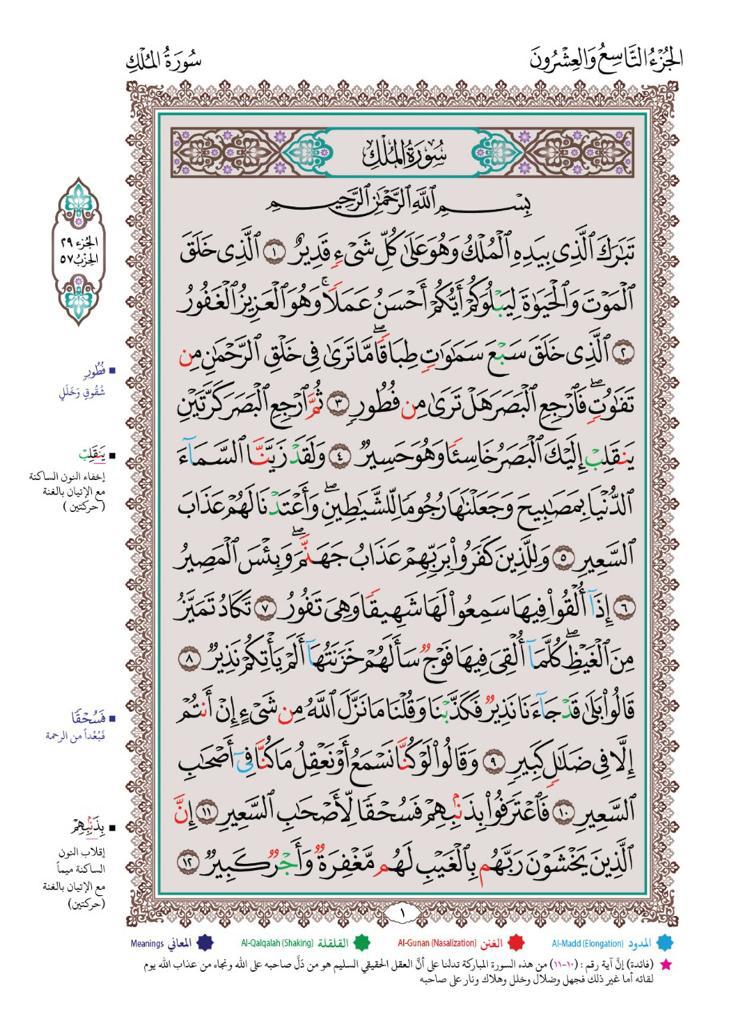 الجُزْءُ التَّاسِعُ وَالعِشْرُونَ
سُورَةُ المُلْكِ
سُورَةُ المُلْكِ
بِسْمِ ٱللَّهِ ٱلرَّحْمَٰنِ ٱلرَّحِيمِ
تَبَٰرَكَ ٱلَّذِى بِيَدِهِ ٱلْمُلْكُ وَهُوَ عَلَىٰ كُلِّ شَىْءٍ قَدِيرٌ ١ ٱلَّذِى خَلَقَ
ٱلْمَوْتَ وَٱلْحَيَوٰةَ لِيَبْلُوَكُمْ أَيُّكُمْ أَحْسَنُ عَمَلًا ۚ وَهُوَ ٱلْعَزِيزُ ٱلْغَفُورُ
٢ ٱلَّذِى خَلَقَ سَبْعَ سَمَٰوَٰتٍ طِبَاقًا ۖ مَّا تَرَىٰ فِى خَلْقِ ٱلرَّحْمَٰنِ مِن
تَفَٰوُتٍ ۖ فَٱرْجِعِ ٱلْبَصَرَ هَلْ تَرَىٰ مِن فُطُورٍ ٣ ثُمَّ ٱرْجِعِ ٱلْبَصَرَ كَرَّتَيْنِ
يَنقَلِبْ إِلَيْكَ ٱلْبَصَرُ خَاسِئًا وَهُوَ حَسِيرٌ ٤ وَلَقَدْ زَيَّنَّا ٱلسَّمَآءَ
ٱلدُّنْيَا بِمَصَٰبِيحَ وَجَعَلْنَٰهَا رُجُومًا لِّلشَّيَٰطِينِ ۖ وَأَعْتَدْنَا لَهُمْ عَذَابَ
ٱلسَّعِيرِ ٥ وَلِلَّذِينَ كَفَرُوا۟ بِرَبِّهِمْ عَذَابُ جَهَنَّمَ ۖ وَبِئْسَ ٱلْمَصِيرُ
٦ إِذَآ أُلْقُوا۟ فِيهَا سَمِعُوا۟ لَهَا شَهِيقًا وَهِىَ تَفُورُ ٧ تَكَادُ تَمَيَّزُ
مِنَ ٱلْغَيْظِ ۖ كُلَّمَآ أُلْقِىَ فِيهَا فَوْجٌ سَأَلَهُمْ خَزَنَتُهَآ أَلَمْ يَأْتِكُمْ نَذِيرٌ ٨
قَالُوا۟ بَلَىٰ قَدْ جَآءَنَا نَذِيرٌ فَكَذَّبْنَا وَقُلْنَا مَا نَزَّلَ ٱللَّهُ مِن شَىْءٍ إِنْ أَنتُمْ
إِلَّا فِى ضَلَٰلٍ كَبِيرٍ ٩ وَقَالُوا۟ لَوْ كُنَّا نَسْمَعُ أَوْ نَعْقِلُ مَا كُنَّا فِىٓ أَصْحَٰبِ
ٱلسَّعِيرِ ١٠ فَٱعْتَرَفُوا۟ بِذَنۢبِهِمْ فَسُحْقًا لِّأَصْحَٰبِ ٱلسَّعِيرِ ١١ إِنَّ
ٱلَّذِينَ يَخْشَوْنَ رَبَّهُم بِٱلْغَيْبِ لَهُم مَّغْفِرَةٌ وَأَجْرٌ كَبِيرٌ ١٢
الجُزء ٢٩
الحِزبُ ٥٧
فُطُورٍ
شُقُوقٍ وَخَلَلٍ
يَنقَلِبْ
إخفاء النون الساكنة
مع الإتيان بالغنة
(حركتين)
فَسُحْقًا
فَبُعْداً من الرحمة
بِذَنۢبِهِمْ
إقلاب النون
الساكنة ميماً
مع الإتيان بالغنة
(حركتين)
١
المدود Al-Madd (Elongation) الغنن Al-Gunan (Nasalization) القلقلة Al-Qalqalah (Shaking) المعاني Meanings
(فائدة) إنَّ آية رقم : (١٠-١١) من هذه السورة المباركة تدلنا على أنَّ العقل الحقيقي السليم هو من دَلَّ صاحبه على الله ونجاه من عذاب الله يوم
لقائه أما غير ذلك فجهل وضلال وخلل وهلاك ونار على صاحبه